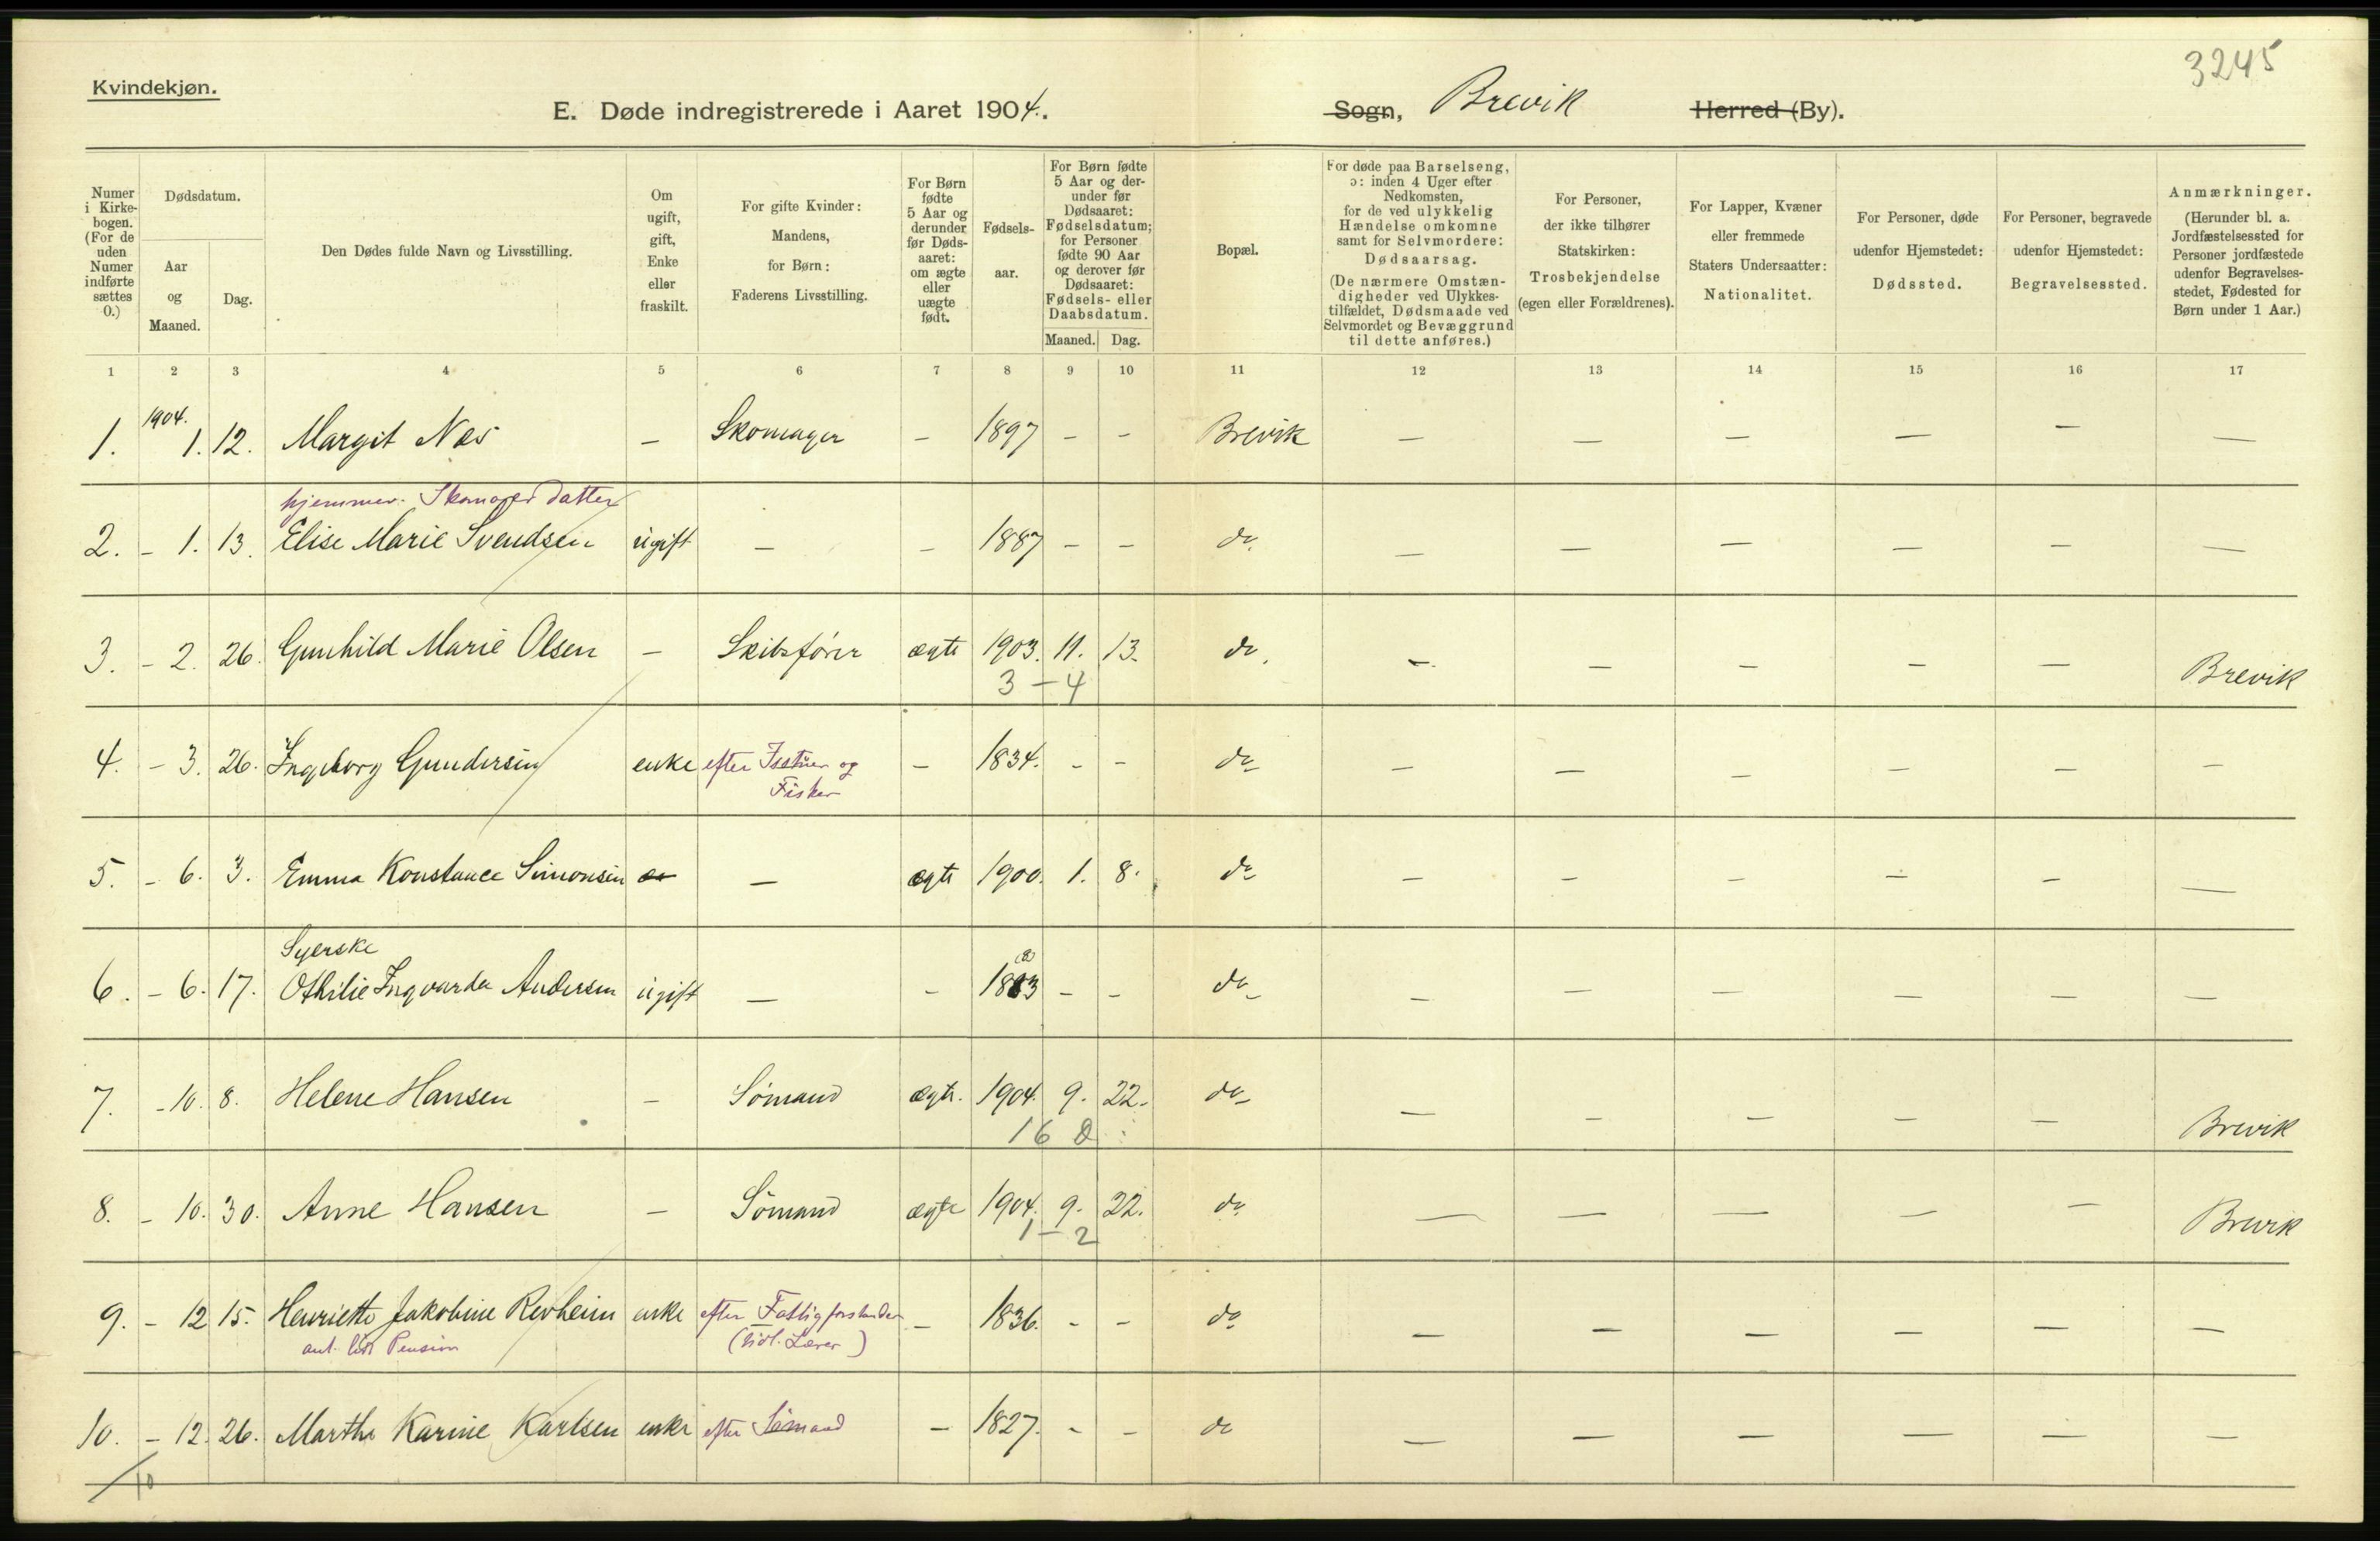 3245
Kvindekjøn.
E. Døde indregistrerede i Aaret 1904.
Sogn, Brevik Herred (By).
Numer i Kirkebogen. (For de uden Numer indførte sættes 0.)
Dødsdatum.
Aar og Maaned.
Dag.
Den Dødes fulde Navn og Livsstilling.
Om ugift, gift, Enke eller fraskilt.
For gifte Kvinder: Mandens, for Børn: Faderens Livsstilling.
For Børn fødte 5 Aar og derunder før Dødsaaret: om ægte eller uægte født.
Fødselsaar.
For Børn fødte 5 Aar og derunder før Dødsaaret: Fødselsdatum; for Personer fødte 90 Aar og derover før Dødsaaret: Fødsels- eller Daabsdatum.
Maaned. Dag.
Bopæl.
For døde paa Barselseng, ɔ: inden 4 Uger efter Nedkomsten, for de ved ulykkelig Hændelse omkomne samt for Selvmordere: Dødsaarsag.
(De nærmere Omstændigheder ved Ulykkestilfældet, Dødsmaade ved Selvmordet og Bevæggrund til dette anføres.)
For Personer, der ikke tilhører Statskirken: Trosbekjendelse (egen eller Forældrenes).
For Lapper, Kvæner eller fremmede Staters Undersaatter: Nationalitet.
For Personer, døde udenfor Hjemstedet: Dødssted.
For Personer, begravede udenfor Hjemstedet: Begravelsessted.
Anmærkninger. (Herunder bl. a. Jordfæstelsessted for Personer jordfæstede udenfor Begravelsesstedet, Fødested for Børn under 1 Aar.)
1 2 3 4 5 6 7 8 9 10 11 12 13 14 15 16 17
1904.
1. 1. 12. Margit Næs – Skomager – 1897 – – Brevik – – – – – –
hjemmev. Skomagerdatter
2. – 1. 13. Elise Marie Svendsen ugift – – 1887 – – do. – – – – – –
3. – 2. 26. Gunhild Marie Olsen – Skibsfører ægte 1903. 11. 13. do. – – – – – Brevik
3 – 4
4. – 3. 26. Ingeborg Gundersen enke efter og – 1834. – – do – – – – – –
Fisker
5. – 6. 3. Emma Konstance Simonsen – ægte 1900. 1. 8. do – – – – – –
Syerske
6. – 6. 17. Othilie Ingvarda Andersen ugift – – 1883 – – do – – – – – –
(8)
7. – 10. 8. Helene Hansen – Sømand ægte. 1904. 9. 22. do – – – – – Brevik
16 D
8. – 10. 30. Anne Hansen – Sømand ægte 1904. 9. 22. do – – – – – Brevik
1 – 2
9. – 12 15. Henriette Jakobine Revheim enke efter Fattigforstander – 1836. – – do – – – – – –
ant. liv. Pension (tidl. Lærer)
10. – 12. 26. Marthe Karine Karlsen enke efter Sømand – 1827. – – do – – – – – –
10